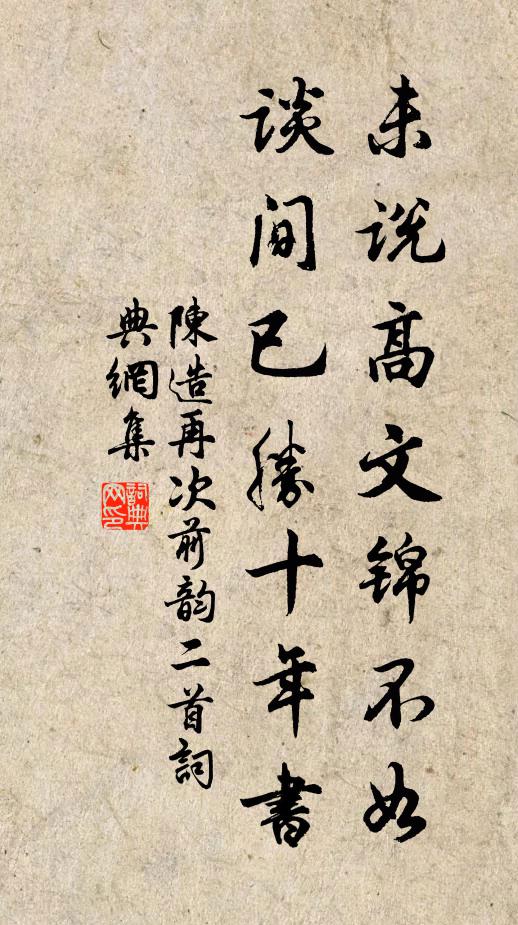 未说高文锦不如
谈间已胜十年書
陳造再次前韵二首詞
典網集
詞典网印